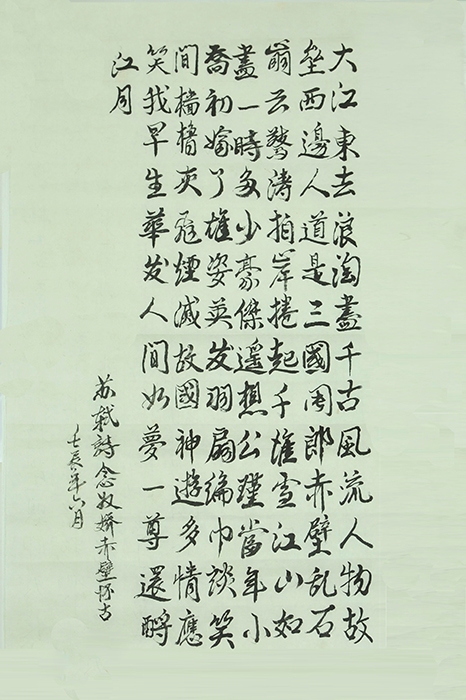 大江東去浪淘盡千古風流人物故
壘西邊人道是三國周郎赤壁乱石
崩云驚濤拍岸捲起千堆雪江山如
畫一時多少豪傑遥想公瑾當年小
喬初嫁了雄姿英发羽扇綸巾談笑
間檣櫓灰飛煙滅故國神遊多情應
笑我早生華发人間如夢一尊還酹
江月
苏軾詩念奴嬌赤壁怀古
壬辰年六月